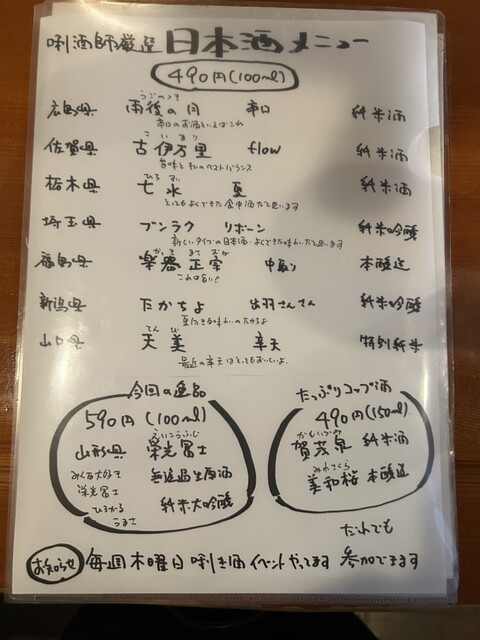 唎酒師厳選 日本酒メニュー
490円(100ml)
うごのつき
広島県 雨後の月 辛口 純米酒
辛口のお酒といえばこれ
こいまり
佐賀県 古伊万里 flow 純米酒
旨味とキレのベストバランス
栃木県 七水 夏 純米酒
とてもよくできた食中酒だと思います
埼玉県 ブンラク リボーン 純米吟醸
新しいタイプの日本酒。よくできた味わいだと思います
がっきまさむね
福島県 楽器正宗 中取り 本醸造
これ旨い!
新潟県 たかちよ 出羽さんさん 純米吟醸
てんび
山口県 天美 辛天 特別純米
最近の辛天はとてもおいしいよ。
今回の逸品
590円(100ml)
えいこうふじ
山形県 栄光冨士
みんな大好き 無濾過生原酒
栄光冨士
ひろがる 純米大吟醸
うまさ
たっぷりコップ酒
490円(150ml)
かもいづみ
賀茂泉 純米酒
みわさくら
美和桜 本醸造
だれでも
お知らせ 毎週木曜日 唎き酒イベントやってます 参加できます